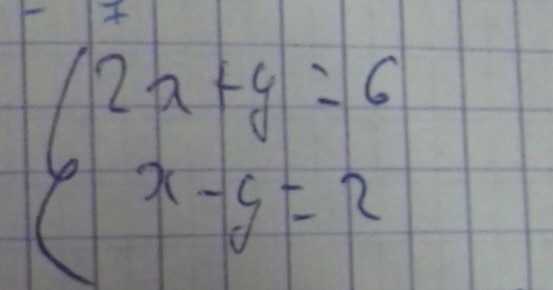 - 7
2x+y=6
x-y=2